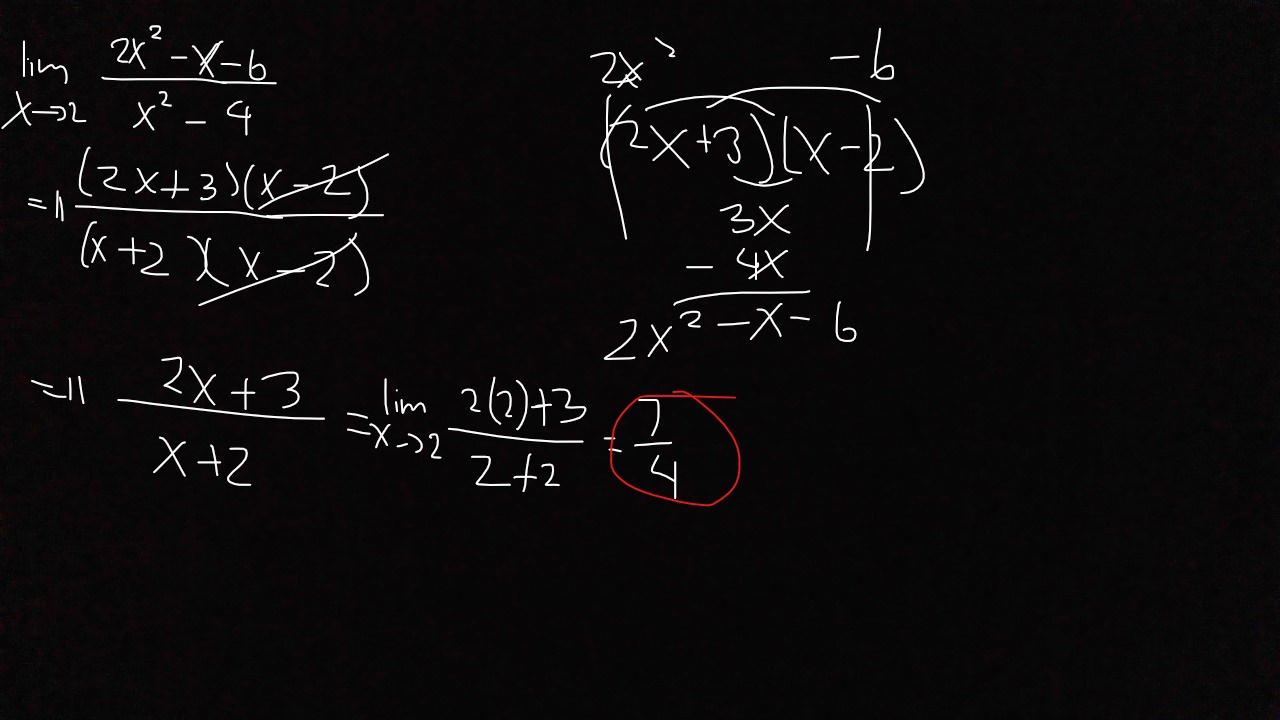 lim x→2 (2x² - x - 6)/(x² - 4)
= 〃 (2x+3)(x-2)/(x+2)(x-2)
= 〃 (2x+3)/(x+2) = lim x→2 (2(2)+3)/(2+2) = 7/4
2x² -6
(2x+3)(x-2)
3x
- 4x
2x² - x - 6